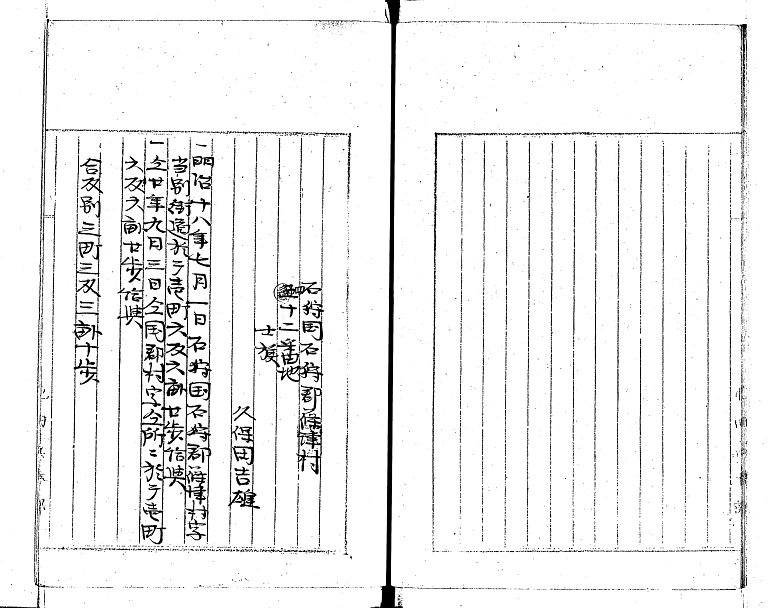 石狩国石狩郡篠津村
四十二番地
士族
久保田吉雄
一明治十八年七月一日石狩国石狩郡篠津村字
当別街道於テ壱町六反六畝廿歩給与
一仝廿年九月三日仝国郡村字仝所ニ於テ壱町
六反六畝廿歩給与
合反別三町三反三畝十歩